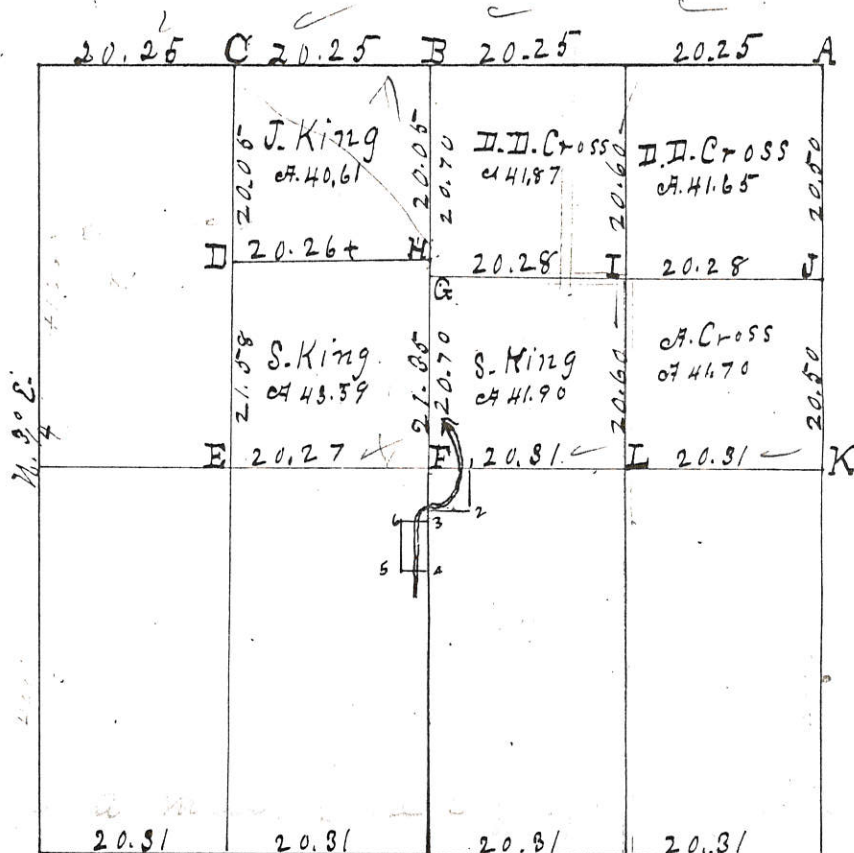 20.25 C 20.25 B 20.25 20.25 A
J. King
A. 40,61
20.05
20.05
20.70
D.D. Cross
A 41,87
20.60
D.D. Cross
A. 41.65
20.50
D 20.26+ H
G 20.28 I 20.28 J
21.58
S. King
A 43.59
21.35
20.70
S. King
A 41.90
20.60
A. Cross
A 41.70
20.50
N. 3/4° E.
E 20.27 F 20.31 L 20.31 K
1 2
6 3
5 4
20.31 20.31 20.31 20.31